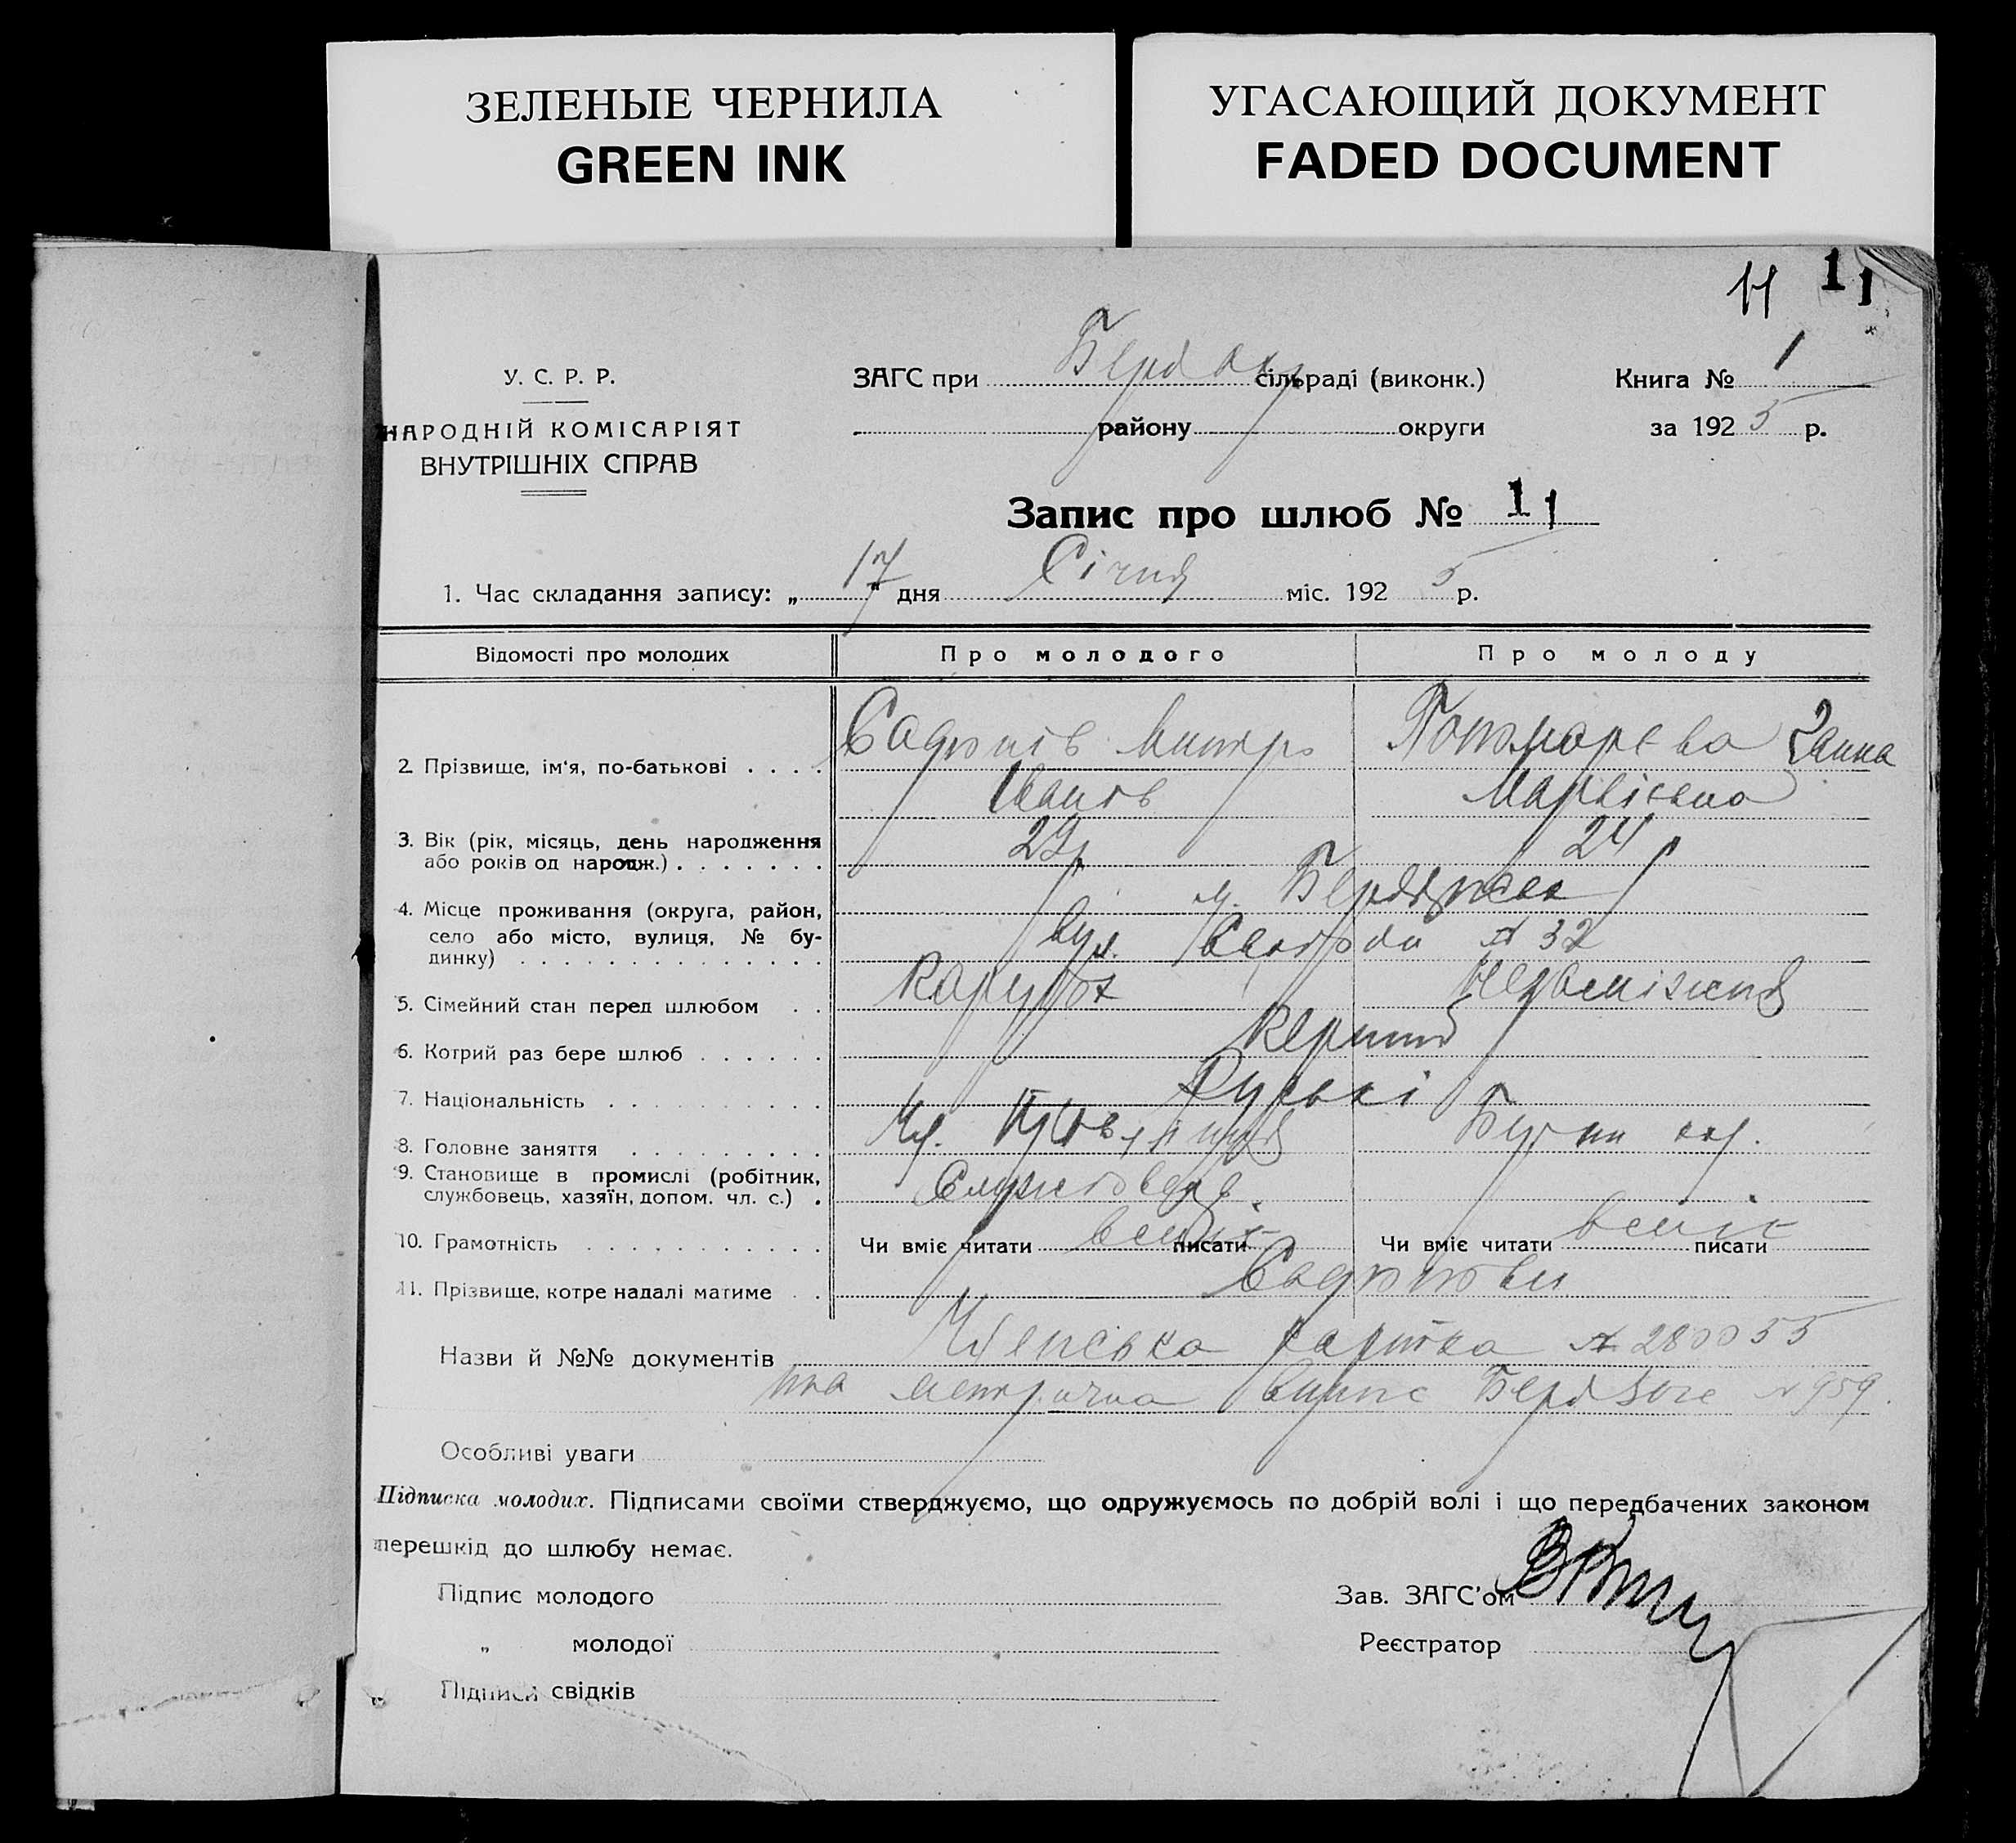 ЗЕЛЕНЫЕ ЧЕРНИЛА
GREEN INK
УГАСАЮЩИЙ ДОКУМЕНТ
FADED DOCUMENT
11 11
У. С. Р. Р.
НАРОДНІЙ КОМІСАРІЯТ
ВНУТРІШНІХ СПРАВ
ЗАГС при Берд окр сільраді (виконк.)
району округи
Книга № 1
за 1925 р.
Запис про шлюб № 11
1. Час складання запису: „17" дня Січня міс. 1925 р.
Відомості про молодих
Про молодого
Про молоду
2. Прізвище, ім'я, по-батькові
Митро Іванов
Ганна
3. Вік (рік, місяць, день народження або років од народж.)
29р
24р
4. Місце проживання (округа, район, село або місто, вулиця, № будинку)
м. Бердянськ
вул. Свободи № 32
5. Сімейний стан перед шлюбом
Парубок
Незаміжня
6. Котрий раз бере шлюб
Перший
7. Національність
Руські
8. Головне заняття
9. Становище в промислі (робітник, службовець, хазяїн, допом. чл. с.)
Службовець
10. Грамотність
Чи вміє читати вміє писати
Чи вміє читати вміє писати
11. Прізвище, котре надалі матиме
Назви й №№ документів Членська картка № 280055
та метрична випис № 959
Особливі уваги
Підписка молодих. Підписами своїми стверджуємо, що одружуємось по добрій волі і що передбачених законом
перешкід до шлюбу немає.
Підпис молодого
„ молодої
Підписи свідків
Зав. ЗАГС'ом
Реєстратор